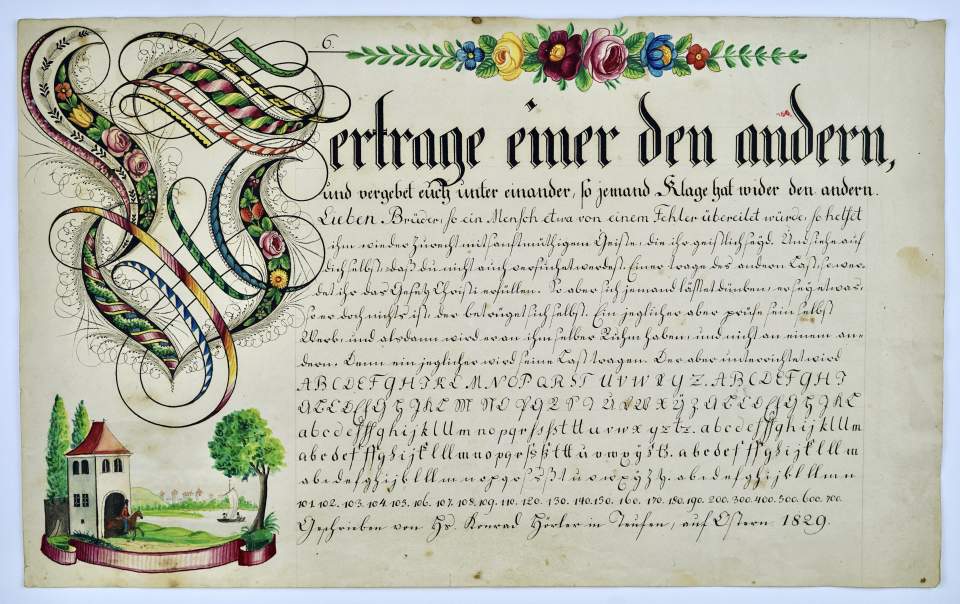 6.
Vertrage einer den andern,
und vergebet euch unter einander, so jemand Klage hat wider den andern.
Lieben Brüder, so ein Mensch etwa von einem Fehler übereilet würde, so helfet
ihm wieder zurecht mit sanftmüthigem Geiste, die ihr geistlich seyd. Und siehe auf
dich selbst, daß du nicht auch versuchet werdest. Einer trage des andern Last, so wer-
det ihr das Gesetz Christi erfüllen. So aber sich jemand lässet dünken, er sey etwas,
so er doch nichts ist, der betrüget sich selbst. Ein jeglicher aber prüfe sein selbst
Werk, und alsdann wird er an ihm selber Ruhm haben, und nicht an einem an-
dern. Denn ein jeglicher wird seine Last tragen. Der aber unterrichtet wird
A B C D E F G H I K L M N O P Q R S T U V W X Y Z. A B C D E F G H I
A B C D E F G H J K L M N O P Q R S T U V W X Y Z A B C D E F G H J K L
a b c d e f ff g h i j k l ll m n o p q r s ſ ſt t tt u v w x y z tz. a b c d e f ff g h i j k l ll m
a b c d e f ff g h i j k l ll m n o p q r s ſ ß t tt u v w x y z tz. a b c d e f ff g h i j k l ll m
a b c d e f g h i j k l ll m n o p q r s ſ ß t u v w x y z tz. a b c d e f g h i j k l ll m n
101. 102. 103. 104. 105. 106. 107. 108. 109. 110. 120. 130. 140. 150. 160. 170. 180. 190. 200. 300. 400. 500. 600. 700.
Geschrieben von Hs. Konrad Hörler in Teufen, auf Ostern 1829.